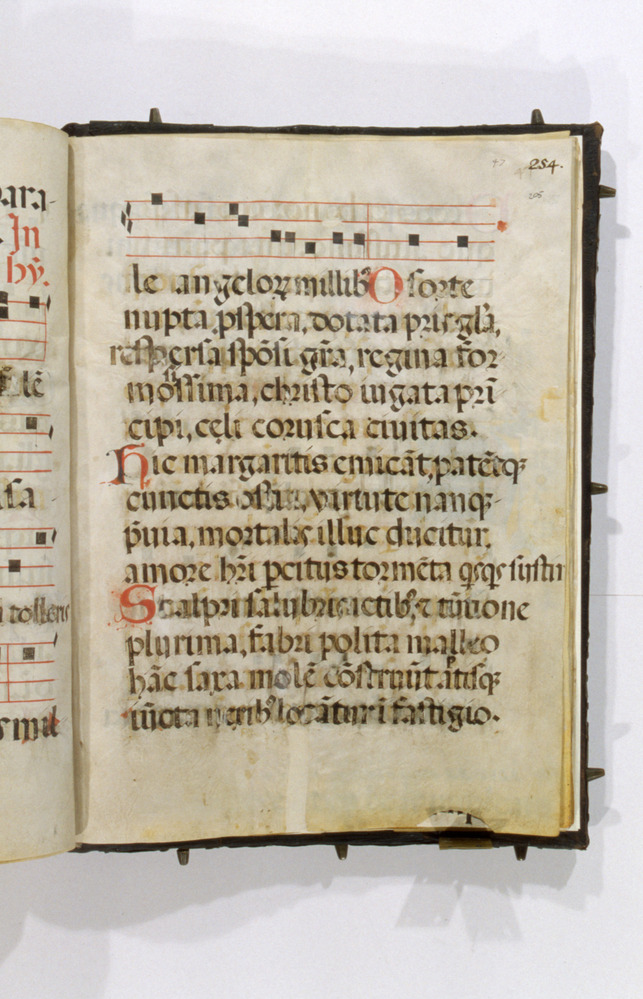 ara-
In
hȳ.
lē
sa
tollens
smil
47 254.
205
le angeloꝝ millibꝰ O sorte
nupta ꝓspera, dotata pr̄is gl̄a,
respersa spōsi gr̄a, regina for-
mossima, christo iugata prī
cipi, celi corusca ciuitas.
Hic margaritis emicāt, patētqꝫ
cunctis virtute nanqꝫ
p̄uia, mortalis illuc ducitur,
amore xp̄i ꝑcitus tormēta qsqs sustin
Scalpri salubris ictibꝰ, ⁊ tūsione
plurima, fabri polita malleo
hāc saxa molē cōstruūt, aptisqꝫ
iūcta locātur ī fastigio.